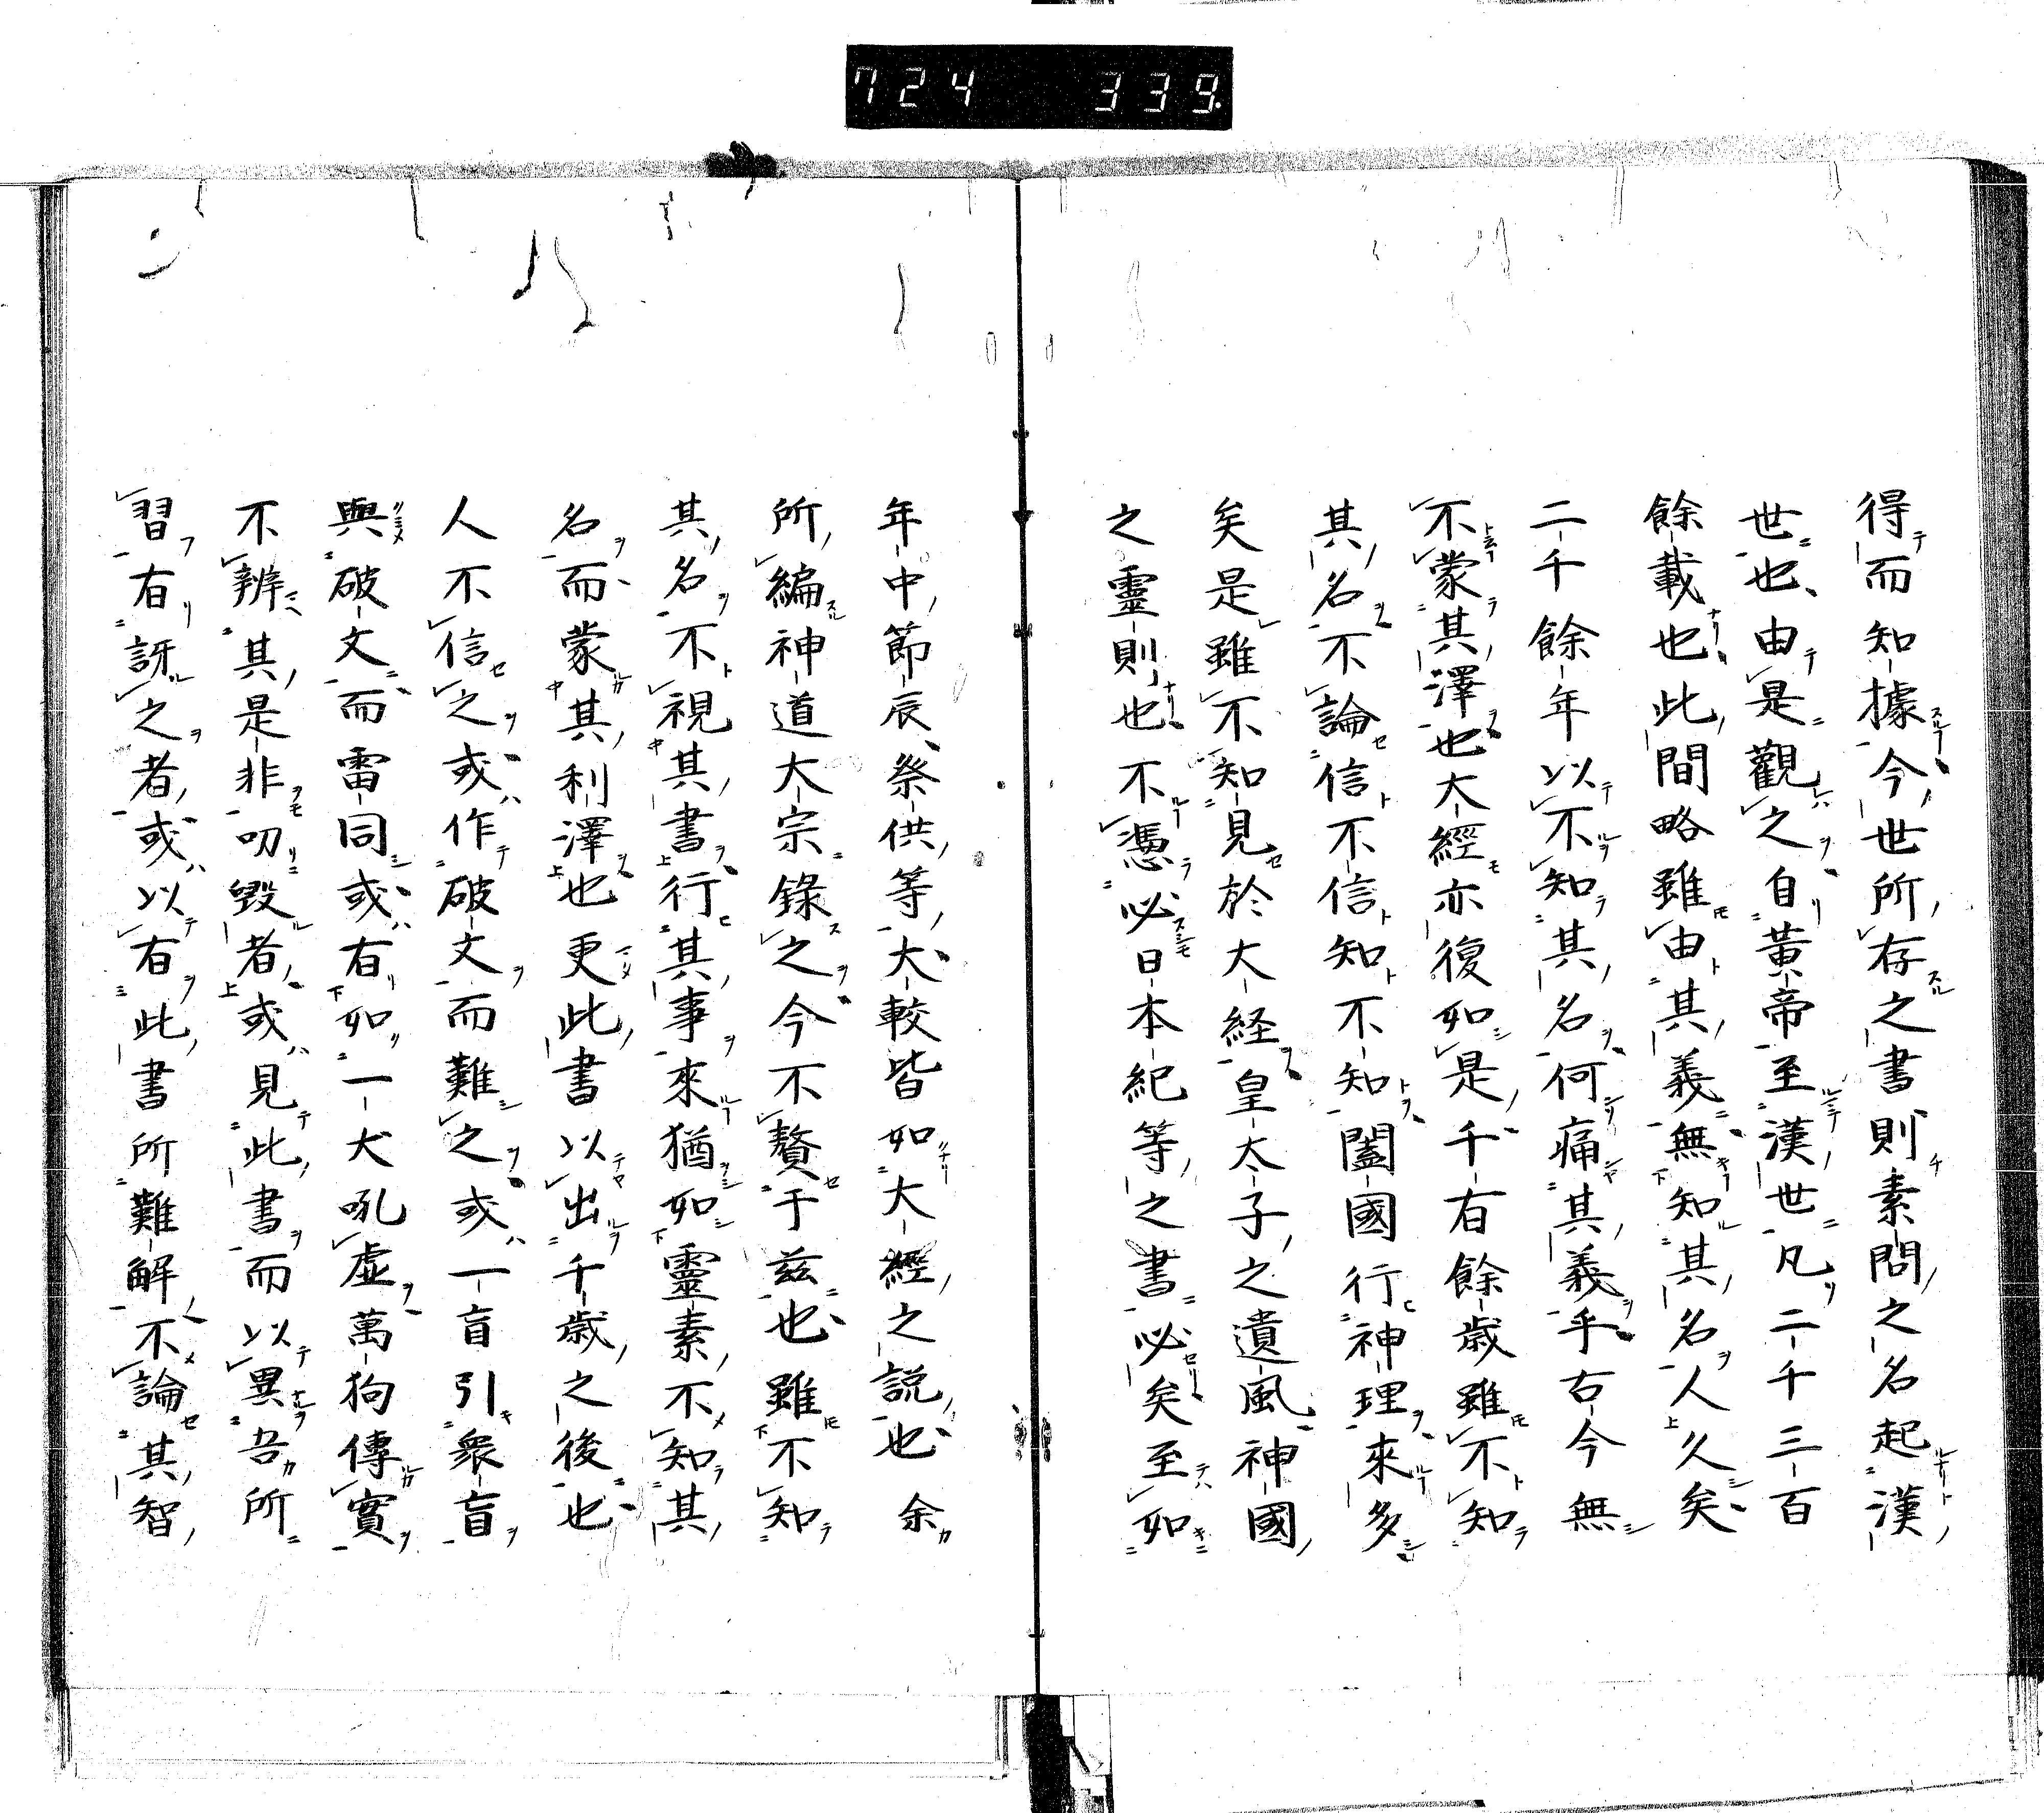 724 339.
得而知據今世所存之書則素問之名起漢
世也由是觀之自黃帝至漢世凡二千三百
餘載也此間略雖由其義無知其名人久矣
二千餘年以不知其名何痛其義乎古今無
不蒙其澤也大經亦復如是千有餘歲雖不知
其名不論信不信知不知闔國行神理來多
矣是雖不知見於大経皇太子之遺風神國
之靈則也不憑必日本紀等之書必矣至如
年中節辰祭供等大較皆如大經之說也余
所編神道大宗錄之今不贅于茲也雖不知
其名不視其書行其事來猶如靈素不知其
名而蒙其利澤也更此書以出千歲之後也
人不信之或作破文而難之或一盲引衆盲
與破文而雷同或有如一犬吼虛萬狗傳實
不辨其是非叨毀者或見此書而以異吾所
習有訝之者或以有此書所難解不論其智